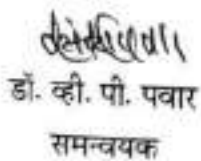 डॉ. व्ही. पी. पवार
समन्वयक